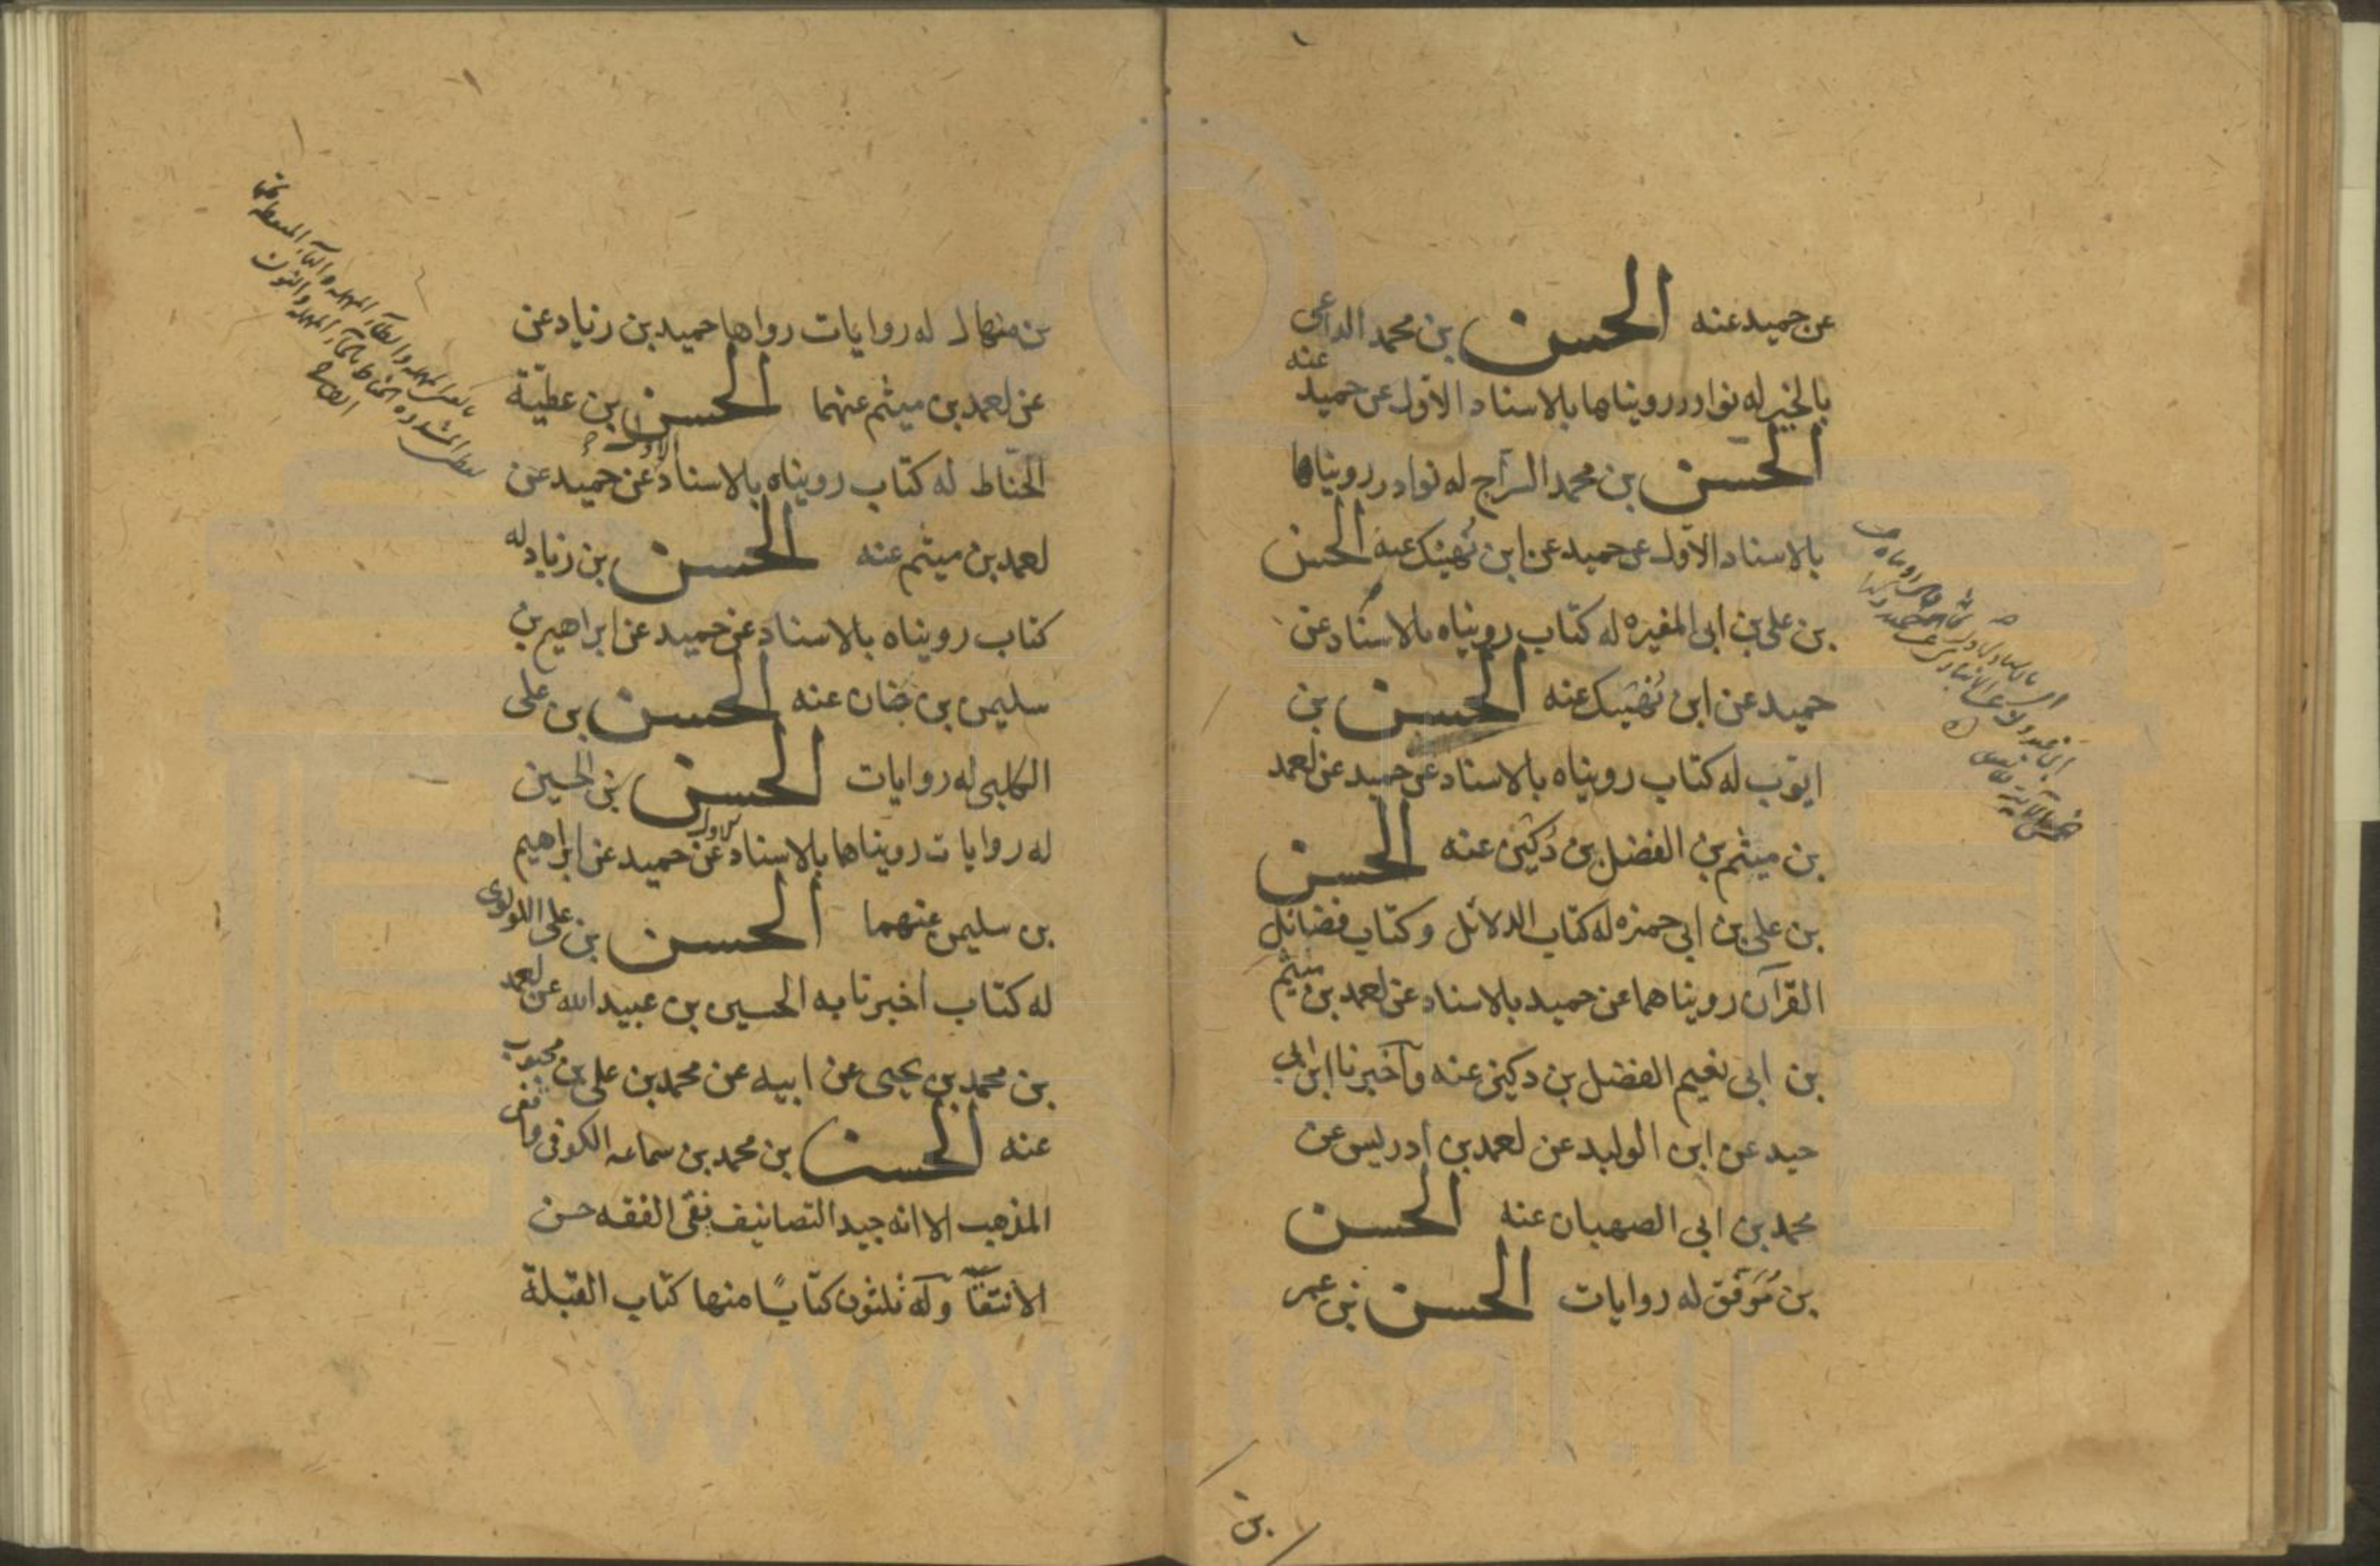 عن حميد عنه الحسن بن محمد الداعى
عنه
بالخير له نوادر رويناها بالاسناد الاول عن حميد
الحسن بن محمد السراج له نوادر رويناها
بالاسناد الاول عن حميد عن ابن نهيك عنه الحسن
بن على بن ابى المغيره له كتاب رويناه بالاسناد عن
حميد عن ابن نهيك عنه الحسن بن
ايوب له كتاب رويناه بالاسناد عن حميد عن احمد
بن ميثم بن الفضل بن دكين عنه الحسن
بن على بن ابى حمزه له كتاب الدلائل وكتاب فضائل
القرآن رويناهما عن حميد بالاسناد عن احمد بن ميثم
بن ابى نعيم الفضل بن دكين عنه وآخبرنا ابن ابى
جيد عن ابن الوليد عن احمد بن ادريس عن
محمد بن ابى الصهبان عنه الحسن
بن مُوَفّق له روايات الحسن بن عمر
بن
بن منهال له روايات رواها حميد بن زياد عن
عن احمد بن ميثم عنهما الحسن بن عطيّة
الاول
الحنّاط له كتاب رويناه بالاسناد عن حميد عن
احمد بن ميثم عنه الحسن بن زياد له
كتاب رويناه بالاسناد عن حميد عن ابراهيم بن
سليمن بن حيان عنه الحسن بن على
الكلبى له روايات الحسن بن الحسين
الاول
له روايات رويناها بالاسناد عن حميد عن ابراهيم
بن سليمن عنهما الحسن بن على اللولوى
له كتاب اخبرنا به الحسين بن عبيد الله عن احمد
بن محمد بن يحيى عن ابيه عن محمد بن على بن محبوب
عنه الحسن بن محمد بن سماعه الكوفى واقفى
المذهب الا انه جيد التصانيف نقى الفقه حسن
الانتقآ وله ثلثون كتابًا منها كتاب القبلة
www.ical.ir